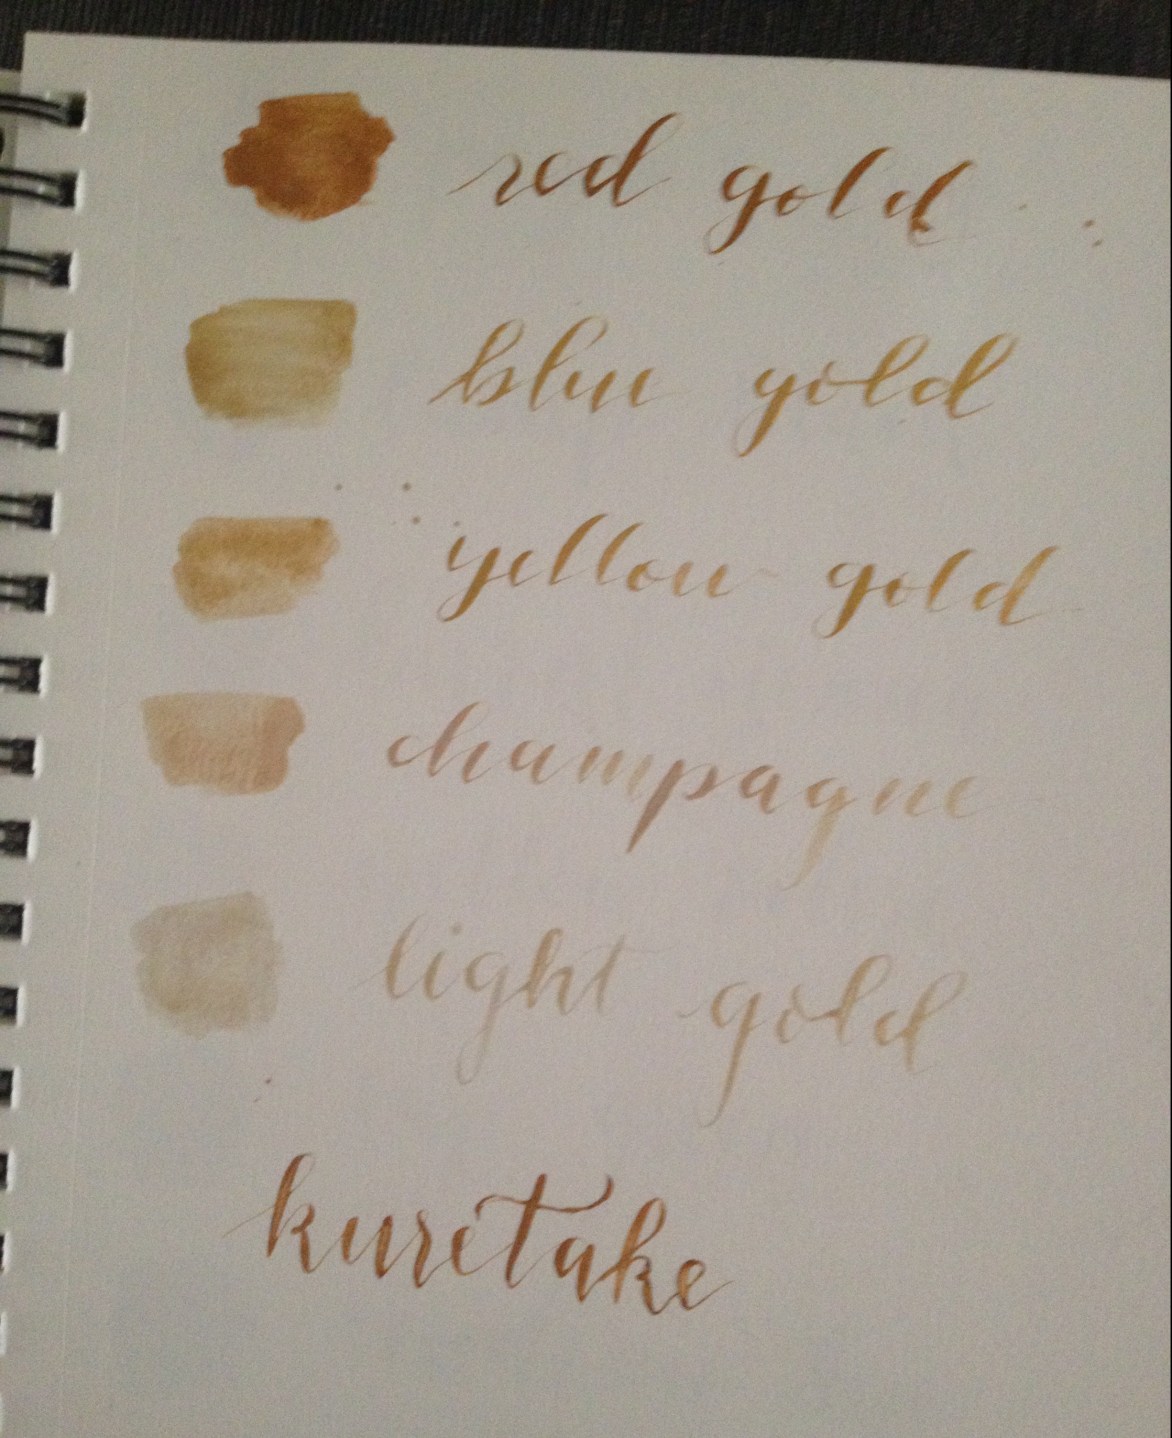 red gold
blue gold
yellow gold
champagne
light gold
kuretake